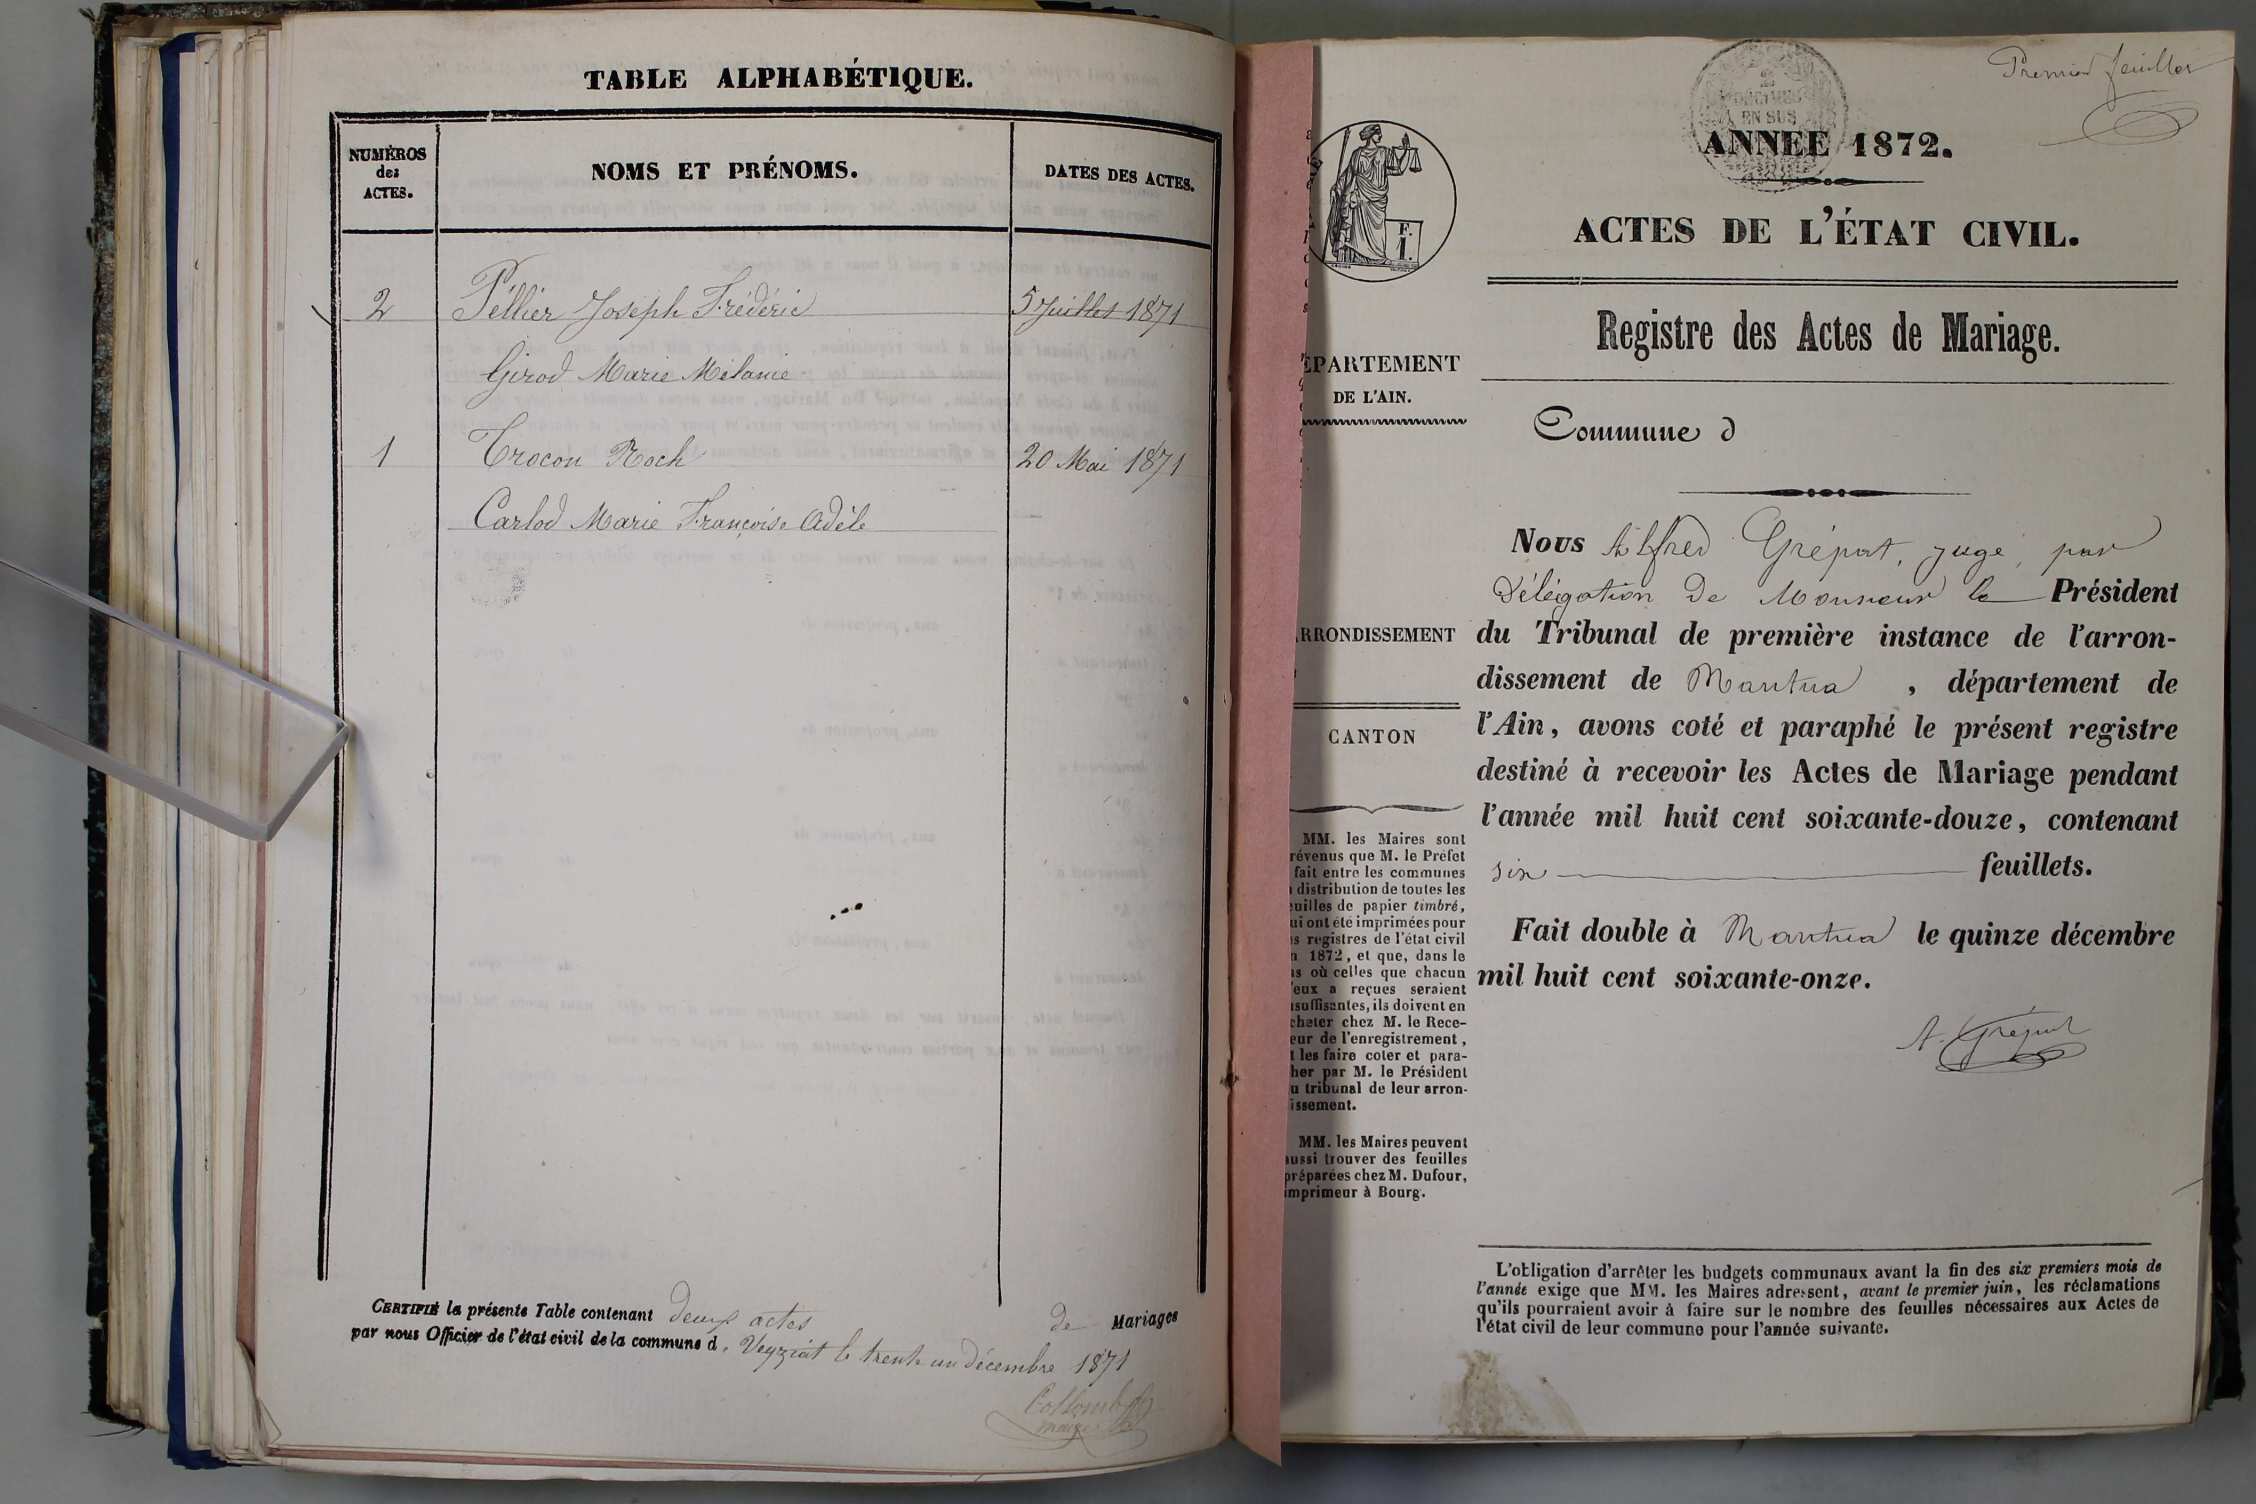 TABLE ALPHABÉTIQUE.
NUMÉROS
des
ACTES.
NOMS ET PRÉNOMS.
DATES DES ACTES.
2 Péllier Joseph Frédéric 5 Juillet 1871
Girod Marie Mélanie
1 Trocon Roch 20 Mai 1871
Carlod Marie Françoise Adèle
CERTIFIÉ la présente Table contenant deux actes de Mariages
par nous Officier de l'état civil de la commune d. Veyziat le trente un décembre 1871
Collomb
maire
Premier feuillet
2
DÉCIMES
EN SUS
ANNEE 1872.
ACTES DE L'ÉTAT CIVIL.
Registre des Actes de Mariage.
F.
1.
ÉPARTEMENT
DE L'AIN.
Commune d
Nous Alfred Grépat, juge, par
délégation de Monsieur le Président
du Tribunal de première instance de l'arron-
dissement de Mantua, département de
l'Ain, avons coté et paraphé le présent registre
destiné à recevoir les Actes de Mariage pendant
l'année mil huit cent soixante-douze, contenant
six feuillets.
Fait double à Mantua le quinze décembre
mil huit cent soixante-onze.
RRONDISSEMENT
CANTON
MM. les Maires sont
révenus que M. le Préfet
fait entre les communes
distribution de toutes les
euilles de papier timbré,
ui ont été imprimées pour
s registres de l'état civil
n 1872, et que, dans le
as où celles que chacun
'eux a reçues seraient
nsuffisantes, ils doivent en
cheter chez M. le Rece-
eur de l'enregistrement,
t les faire coter et para-
her par M. le Président
u tribunal de leur arron-
issement.
MM. les Maires peuvent
ussi trouver des feuilles
préparées chez M. Dufour,
mprimeur à Bourg.
A. Grépat
L'obligation d'arrêter les budgets communaux avant la fin des six premiers mois de
l'année exige que MM. les Maires adressent, avant le premier juin, les réclamations
qu'ils pourraient avoir à faire sur le nombre des feuilles nécessaires aux Actes de
l'état civil de leur commune pour l'année suivante.